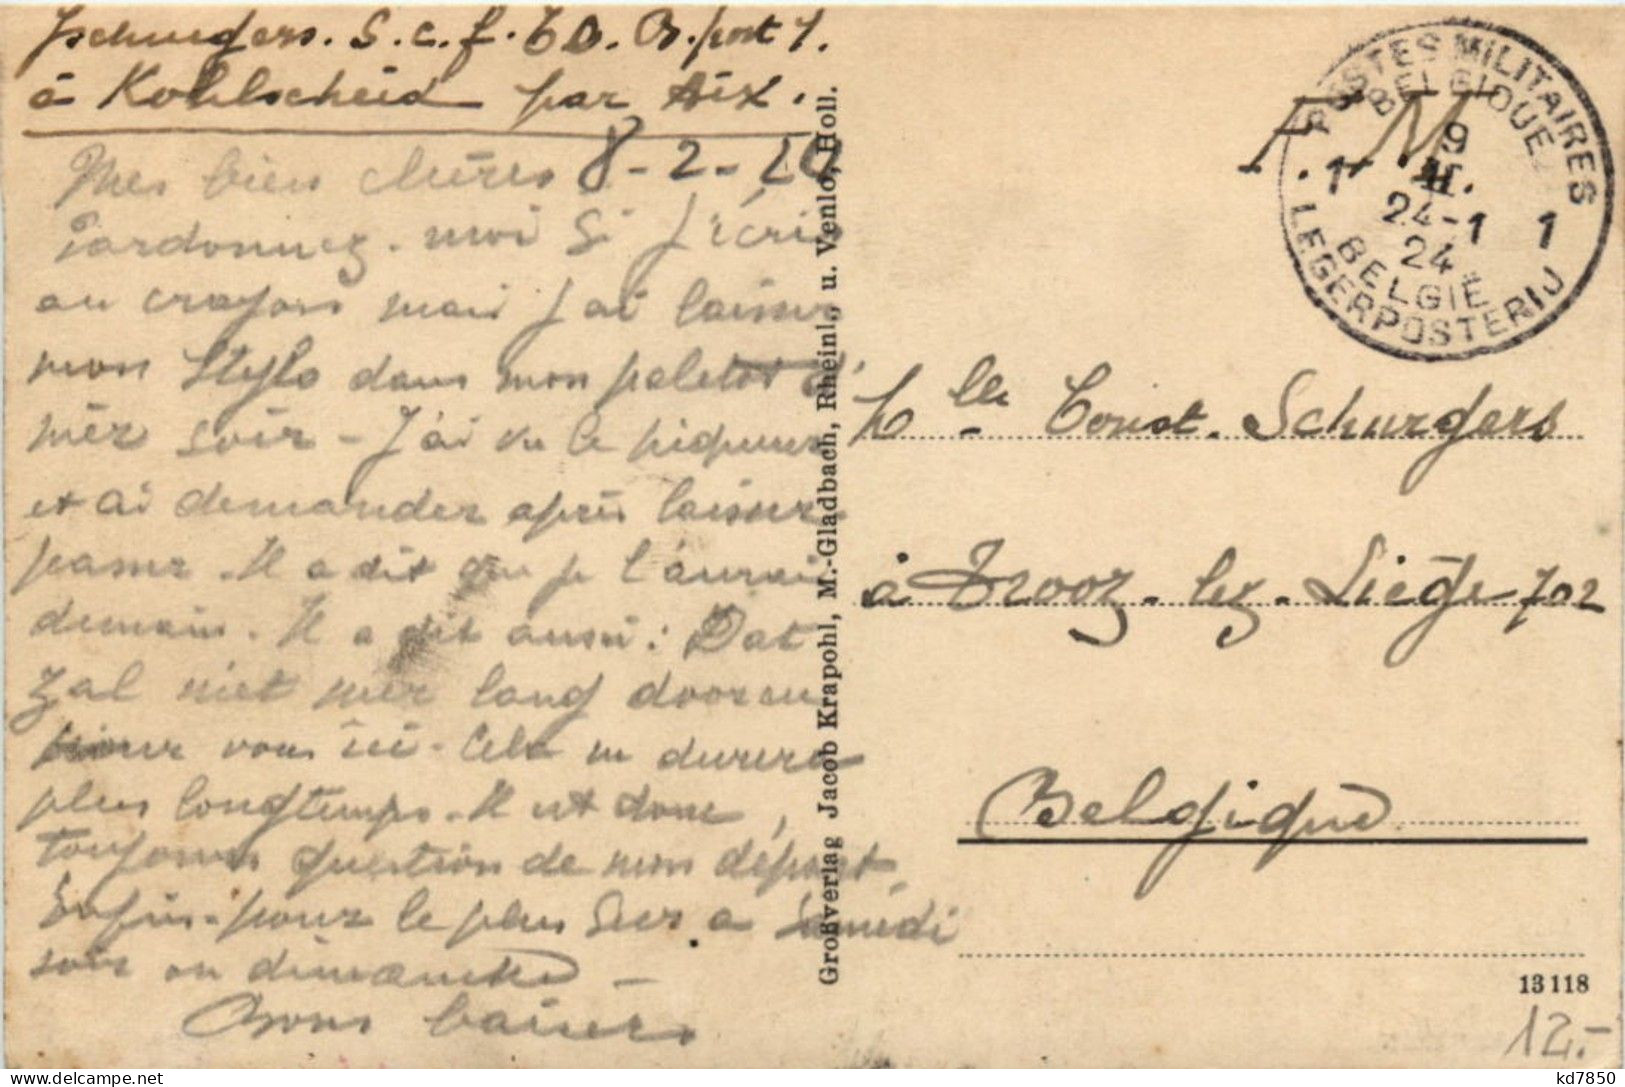 Jschurgers. S. c. f. T D. B. post 1.
à Kohlscheid par Aix.
8-2-24
Mes bien chères
Pardonnez-moi si j'écris
au crayon mais j'ai laisser
mon Stylo dans mon paletot d'
hier soir - J'ai vu le piqueur
et ai demander après laisser
passer. Il a dit que je l'aurai
demain. Il a dit aussi: Dat
zal niet meer lang dooren
pour vous ici. Cela ne durera
plus longtemps. Il est donc,
toujours question de mon départ.
Enfin - pour le plus sur a samedi
soir ou dimanche -
Bons baisers
Großverlag Jacob Krapohl, M.-Gladbach, Rheinl., u. Venlo, Holl.
POSTES MILITAIRES
BELGIQUE
F.M.
9
1 II. 1
24-1
24
BELGIË
LEGERPOSTERIJ
Const. Schurgers
à Trooz-lez-Liège 702
Belgique
13118
12.-
kd7850